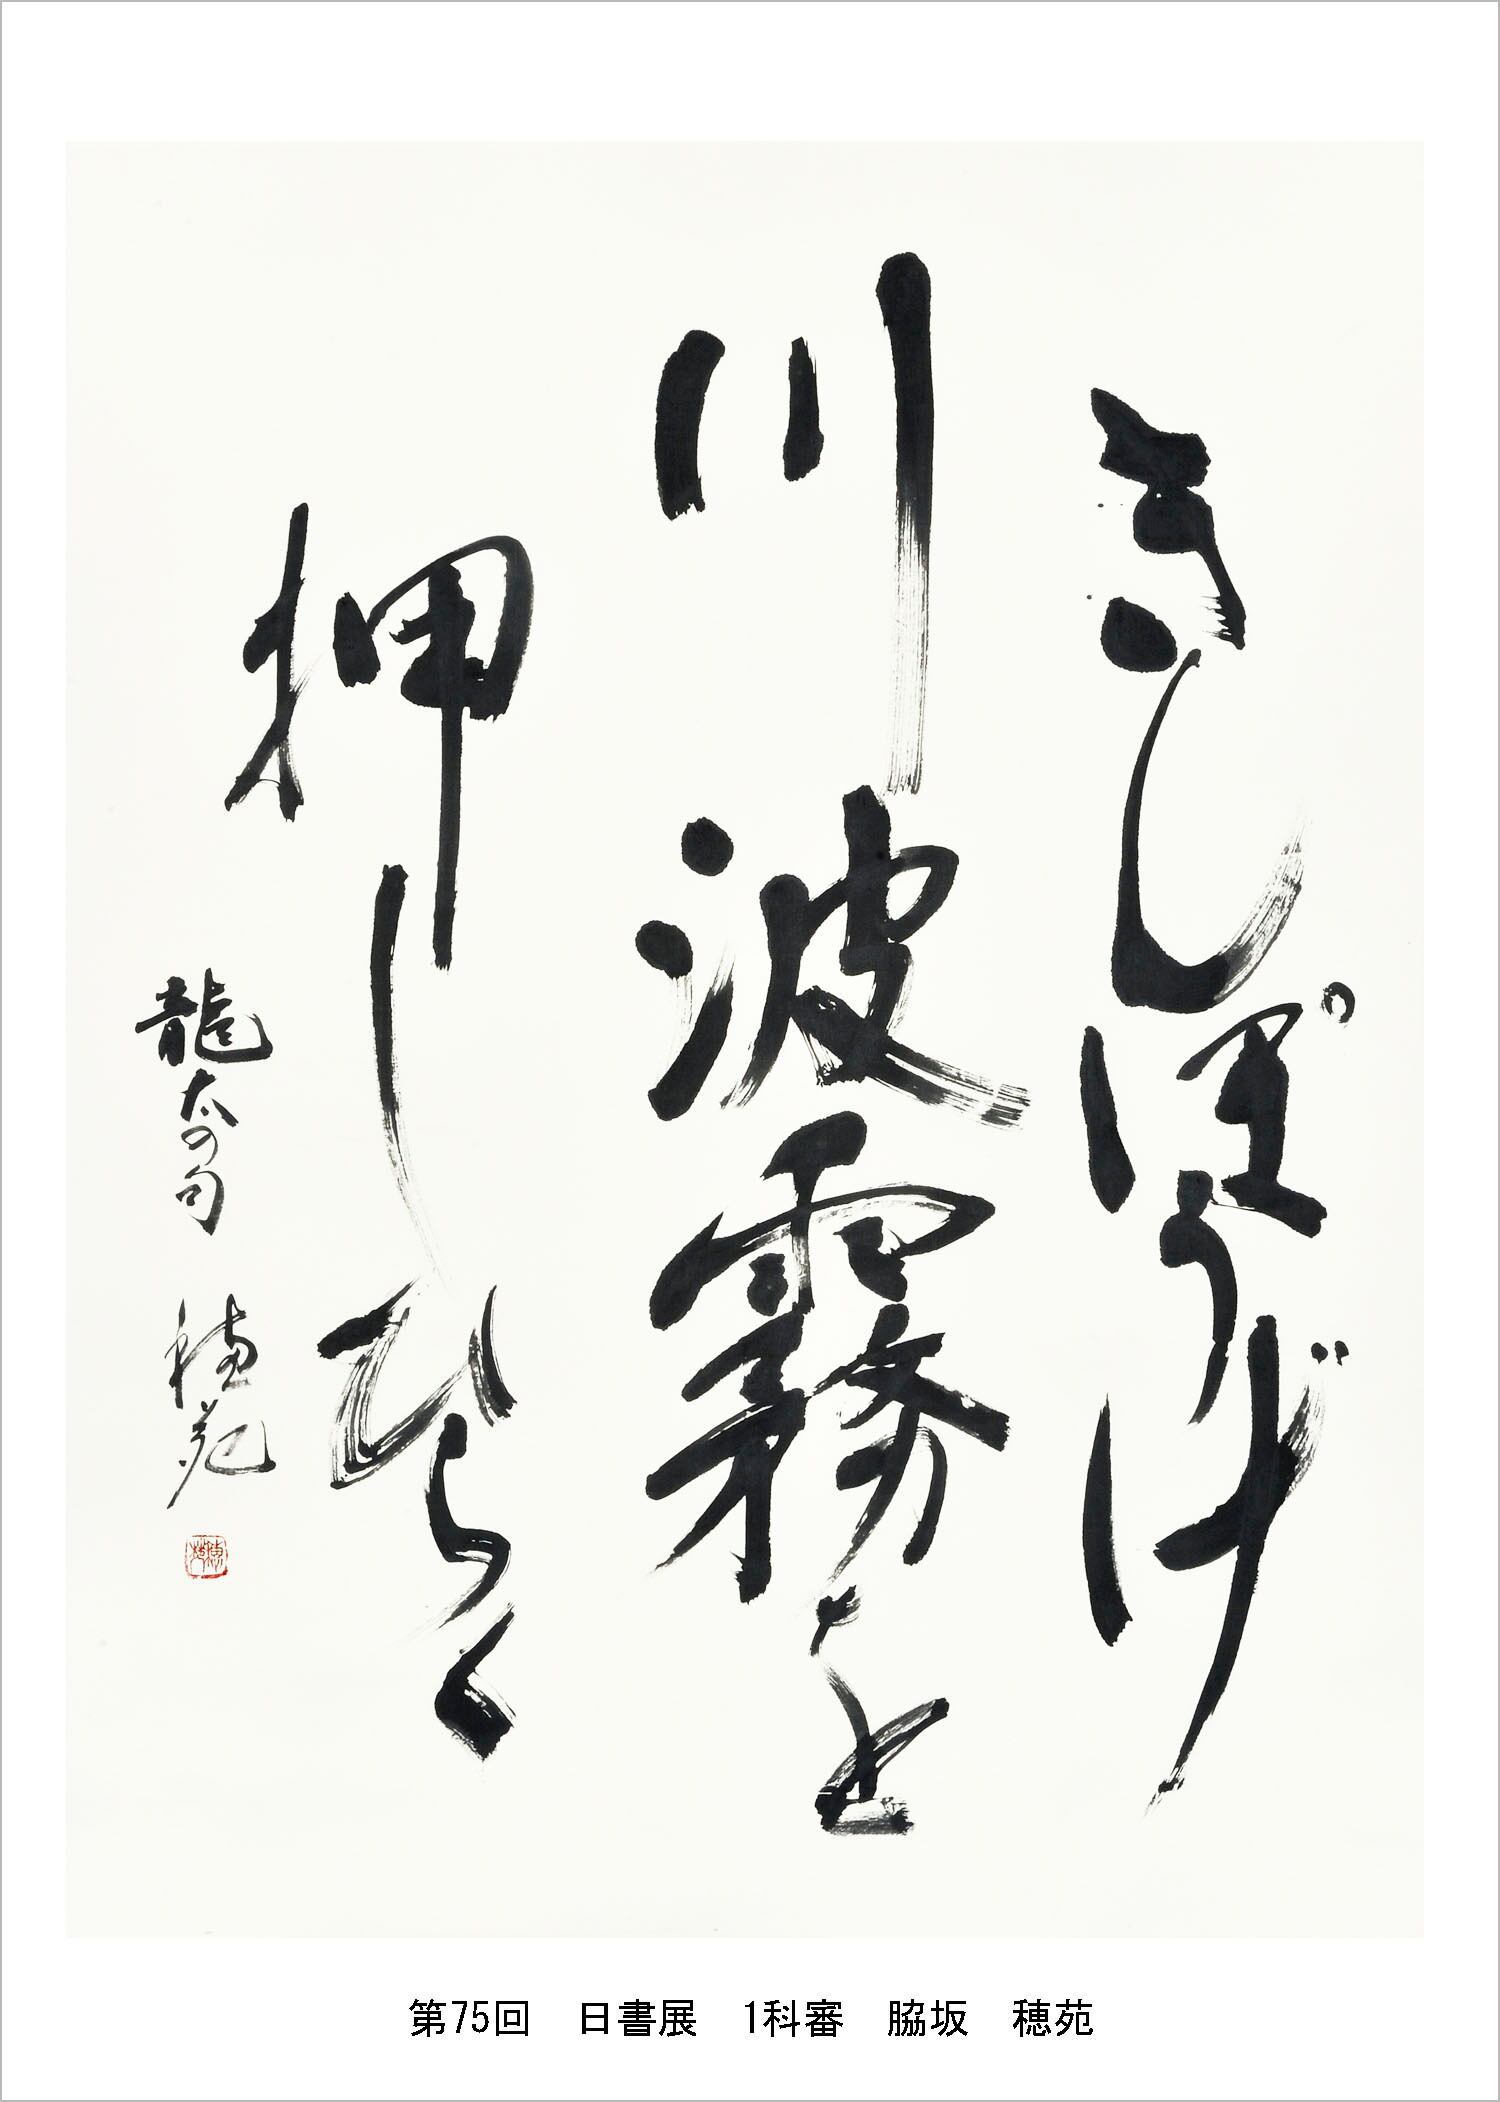 きんぽうげ
川波霧を
押しひらく
龍太の句 穂苑
穂苑
第75回 日書展 1科審 脇坂 穂苑